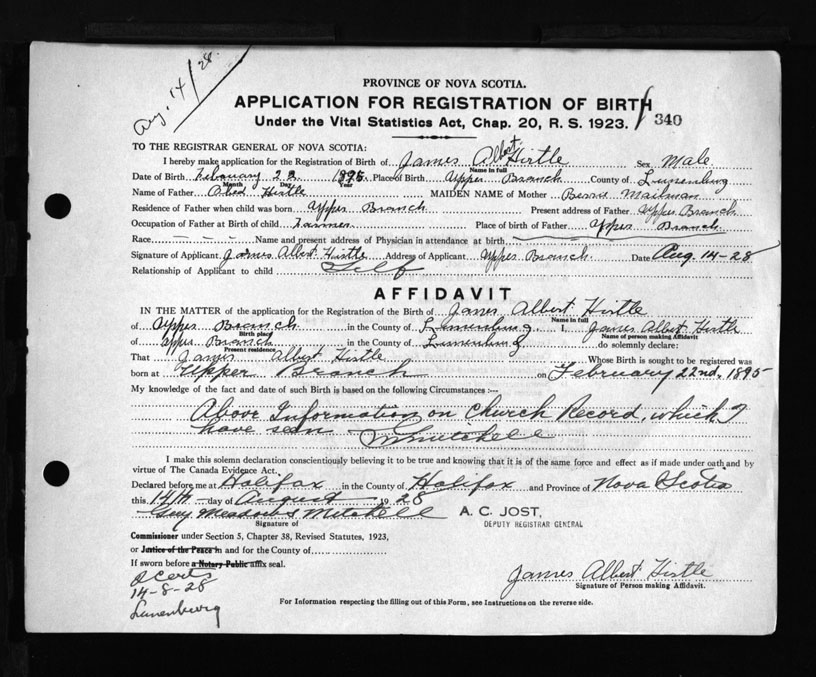 Aug. 14/28
PROVINCE OF NOVA SCOTIA.
APPLICATION FOR REGISTRATION OF BIRTH
Under the Vital Statistics Act, Chap. 20, R. S. 1923. 340
TO THE REGISTRAR GENERAL OF NOVA SCOTIA:
I hereby make application for the Registration of Birth of James Albert Hirtle Sex Male
Name in full
Date of Birth February 22 1895 Place of Birth Upper Branch County of Lunenburg
Month Day Year
Name of Father Hirtle MAIDEN NAME of Mother Mailman
Residence of Father when child was born Upper Branch Present address of Father Upper Branch
Occupation of Father at Birth of child Farmer Place of birth of Father Upper Branch
Race Name and present address of Physician in attendance at birth
Signature of Applicant James Albert Hirtle Address of Applicant Upper Branch. Date Aug 14-28
Relationship of Applicant to child Self
AFFIDAVIT
IN THE MATTER of the application for the Registration of the Birth of James Albert Hirtle
Name in full
of Upper Branch in the County of Lunenburg. I, James Albert Hirtle
Birth place Name of person making Affidavit
of Upper Branch in the County of Lunenburg do solemnly declare:
Present residence
That James Albert Hirtle Whose Birth is sought to be registered was
born at Upper Branch on February 22nd, 1895
My knowledge of the fact and date of such Birth is based on the following Circumstances :—
Above Information on Church Record, which I
have seen Mitchell
I make this solemn declaration conscientiously believing it to be true and knowing that it is of the same force and effect as if made under oath and by
virtue of The Canada Evidence Act.
Declared before me at Halifax in the County of Halifax and Province of Nova Scotia
this 14th day of August 1928
Guy Meadows Mitchell A. C. JOST,
Signature of DEPUTY REGISTRAR GENERAL
Commissioner under Section 5, Chapter 38, Revised Statutes, 1923,
or Justice of the Peace in and for the County of
If sworn before a Notary Public affix seal.
14-8-28
Lunenburg
James Albert Hirtle
Signature of Person making Affidavit.
For Information respecting the filling out of this Form, see Instructions on the reverse side.